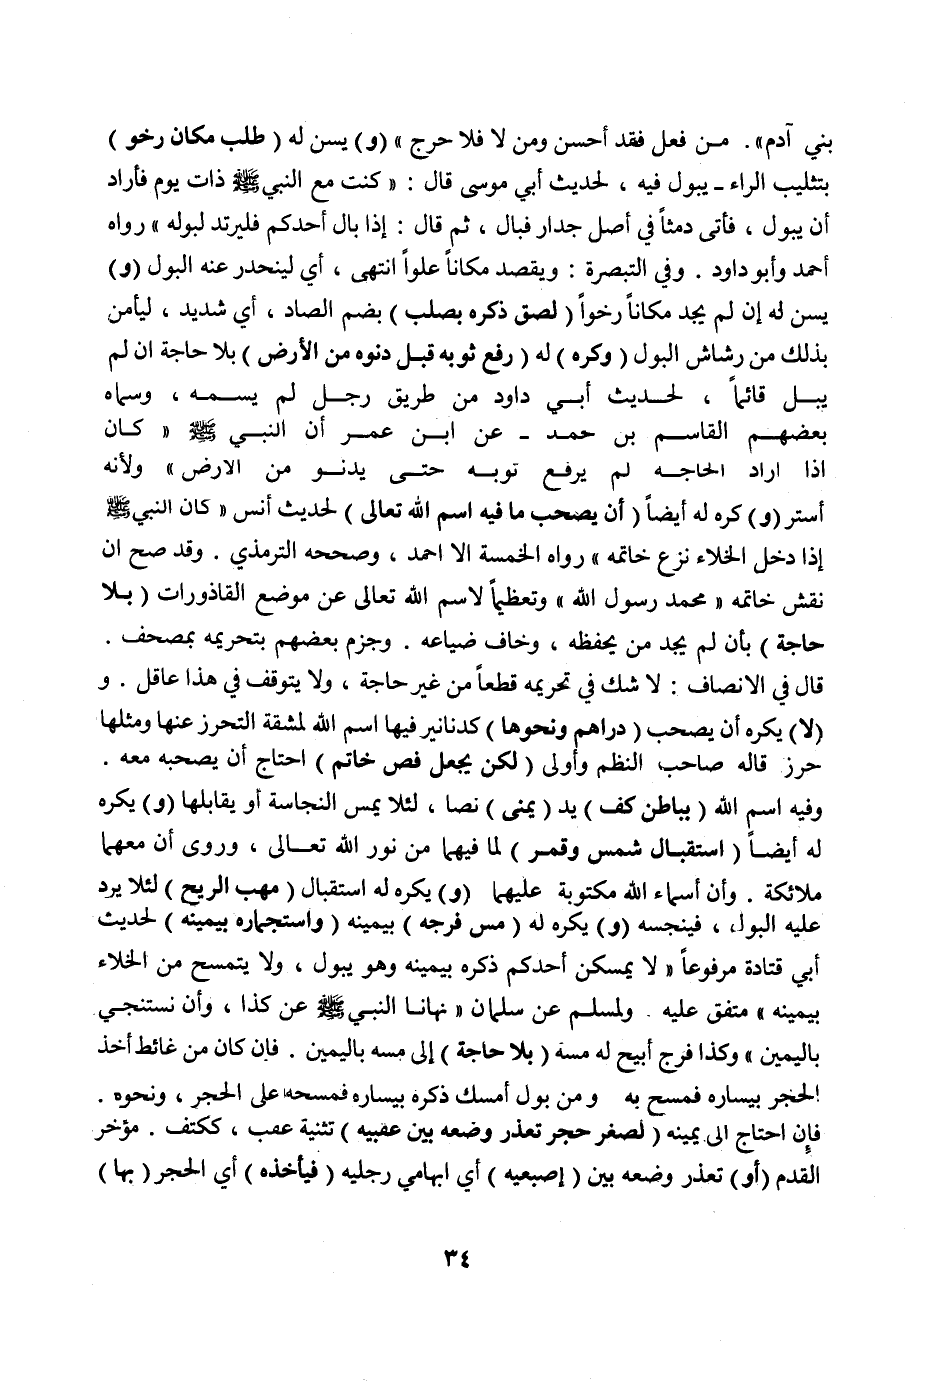 بني آدم» . مـن فعل فقد أحسن ومن لا فلا حرج » (و) يسن له ( طلب مكان رخو )
بتثليث الراء ـ يبول فيه ، لحديث أبي موسى قال : « كنت مع النبي ﷺ ذات يوم فأراد
أن يبول ، فأتى دمثاً في أصل جدار فبال ، ثم قال : إذا بال أحدكم فليرتد لبوله » رواه
أحمد وأبو داود . وفي التبصرة : ويقصد مكاناً علواً انتهى ، أي لينحدر عنه البول (و)
يسن له إن لم يجد مكاناً رخواً ( لصق ذكره بصلب ) بضم الصاد ، أي شديد ، ليأمن
بذلك من رشاش البول ( وكره ) له ( رفع ثوبه قبل دنوه من الأرض ) بلا حاجة ان لم
يبل قائماً ، لحديث أبي داود من طريق رجل لم يسمه ، وسماه
بعضهم القاسم بن حمد ـ عن ابن عمر أن النبي ﷺ « كان
اذا اراد الحاجه لم يرفع ثوبه حتى يدنو من الارض » ولأنه
أستر (و) كره له أيضاً ( أن يصحب ما فيه اسم الله تعالى ) لحديث أنس « كان النبي ﷺ
إذا دخل الخلاء نزع خاتمه » رواه الخمسة الا احمد ، وصححه الترمذي . وقد صح ان
نقش خاتمه « محمد رسول الله » وتعظيماً لاسم الله تعالى عن موضع القاذورات ( بلا
حاجة ) بأن لم يجد من يحفظه ، وخاف ضياعه . وجزم بعضهم بتحريمه بمصحف .
قال في الانصاف : لا شك في تحريمه قطعاً من غير حاجة ، ولا يتوقف في هذا عاقل . و
(لا) يكره أن يصحب ( دراهم ونحوها ) كدنانير فيها اسم الله لمشقة التحرز عنها ومثلها
حرز قاله صاحب النظم وأولى ( لكن يجعل فص خاتم ) احتاج أن يصحبه معه .
وفيه اسم الله ( بباطن كف ) يد ( يمنى ) نصا ، لئلا يمس النجاسة أو يقابلها (و) يكره
له أيضاً ( استقبال شمس وقمر ) لما فيهما من نور الله تعالى ، وروى أن معهما
ملائكة . وأن أسماء الله مكتوبة عليهما (و) يكره له استقبال ( مهب الريح ) لئلا يرد
عليه البول ، فينجسه (و) يكره له ( مس فرجه ) بيمينه ( واستجماره بيمينه ) لحديث
أبي قتادة مرفوعاً « لا يمسكن أحدكم ذكره بيمينه وهو يبول ، ولا يتمسح من الخلاء
بيمينه » متفق عليه . ولمسلم عن سلمان « نهانا النبي ﷺ عن كذا ، وأن نستنجي
باليمين » وكذا فرج أبيح له مسه ( بلا حاجة ) إلى مسه باليمين . فان كان من غائط أخذ
الحجر بيساره فمسح به ومن بول أمسك ذكره بيساره فمسحه على الحجر ، ونحوه .
فإن احتاج الى يمينه ( لصغر حجر تعذر وضعه بين عقبيه ) تثنية عقب ، ككتف . مؤخر
القدم (أو) تعذر وضعه بين ( إصبعيه ) أي ابهامي رجليه ( فيأخذه ) أي الحجر ( بها )
٣٤